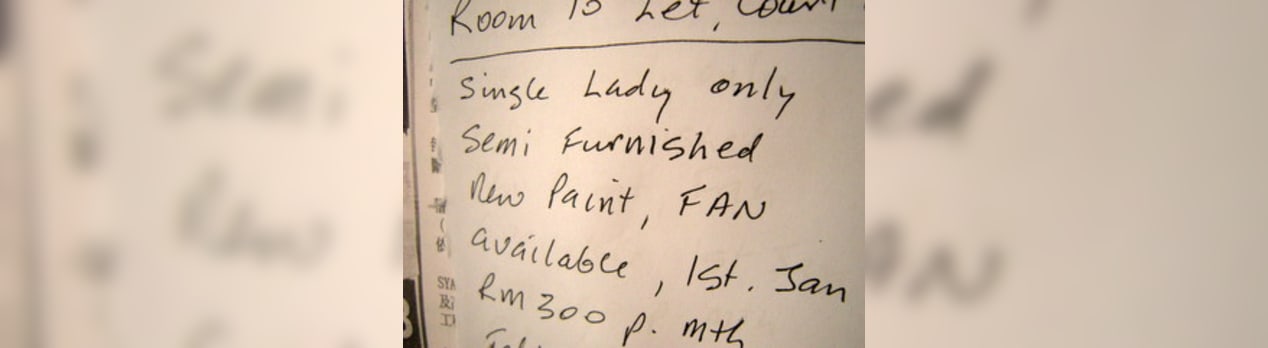 Room To Let, Court
Single Lady only
Semi Furnished
New Paint, FAN
available, 1st. Jan
RM 300 P. Mth